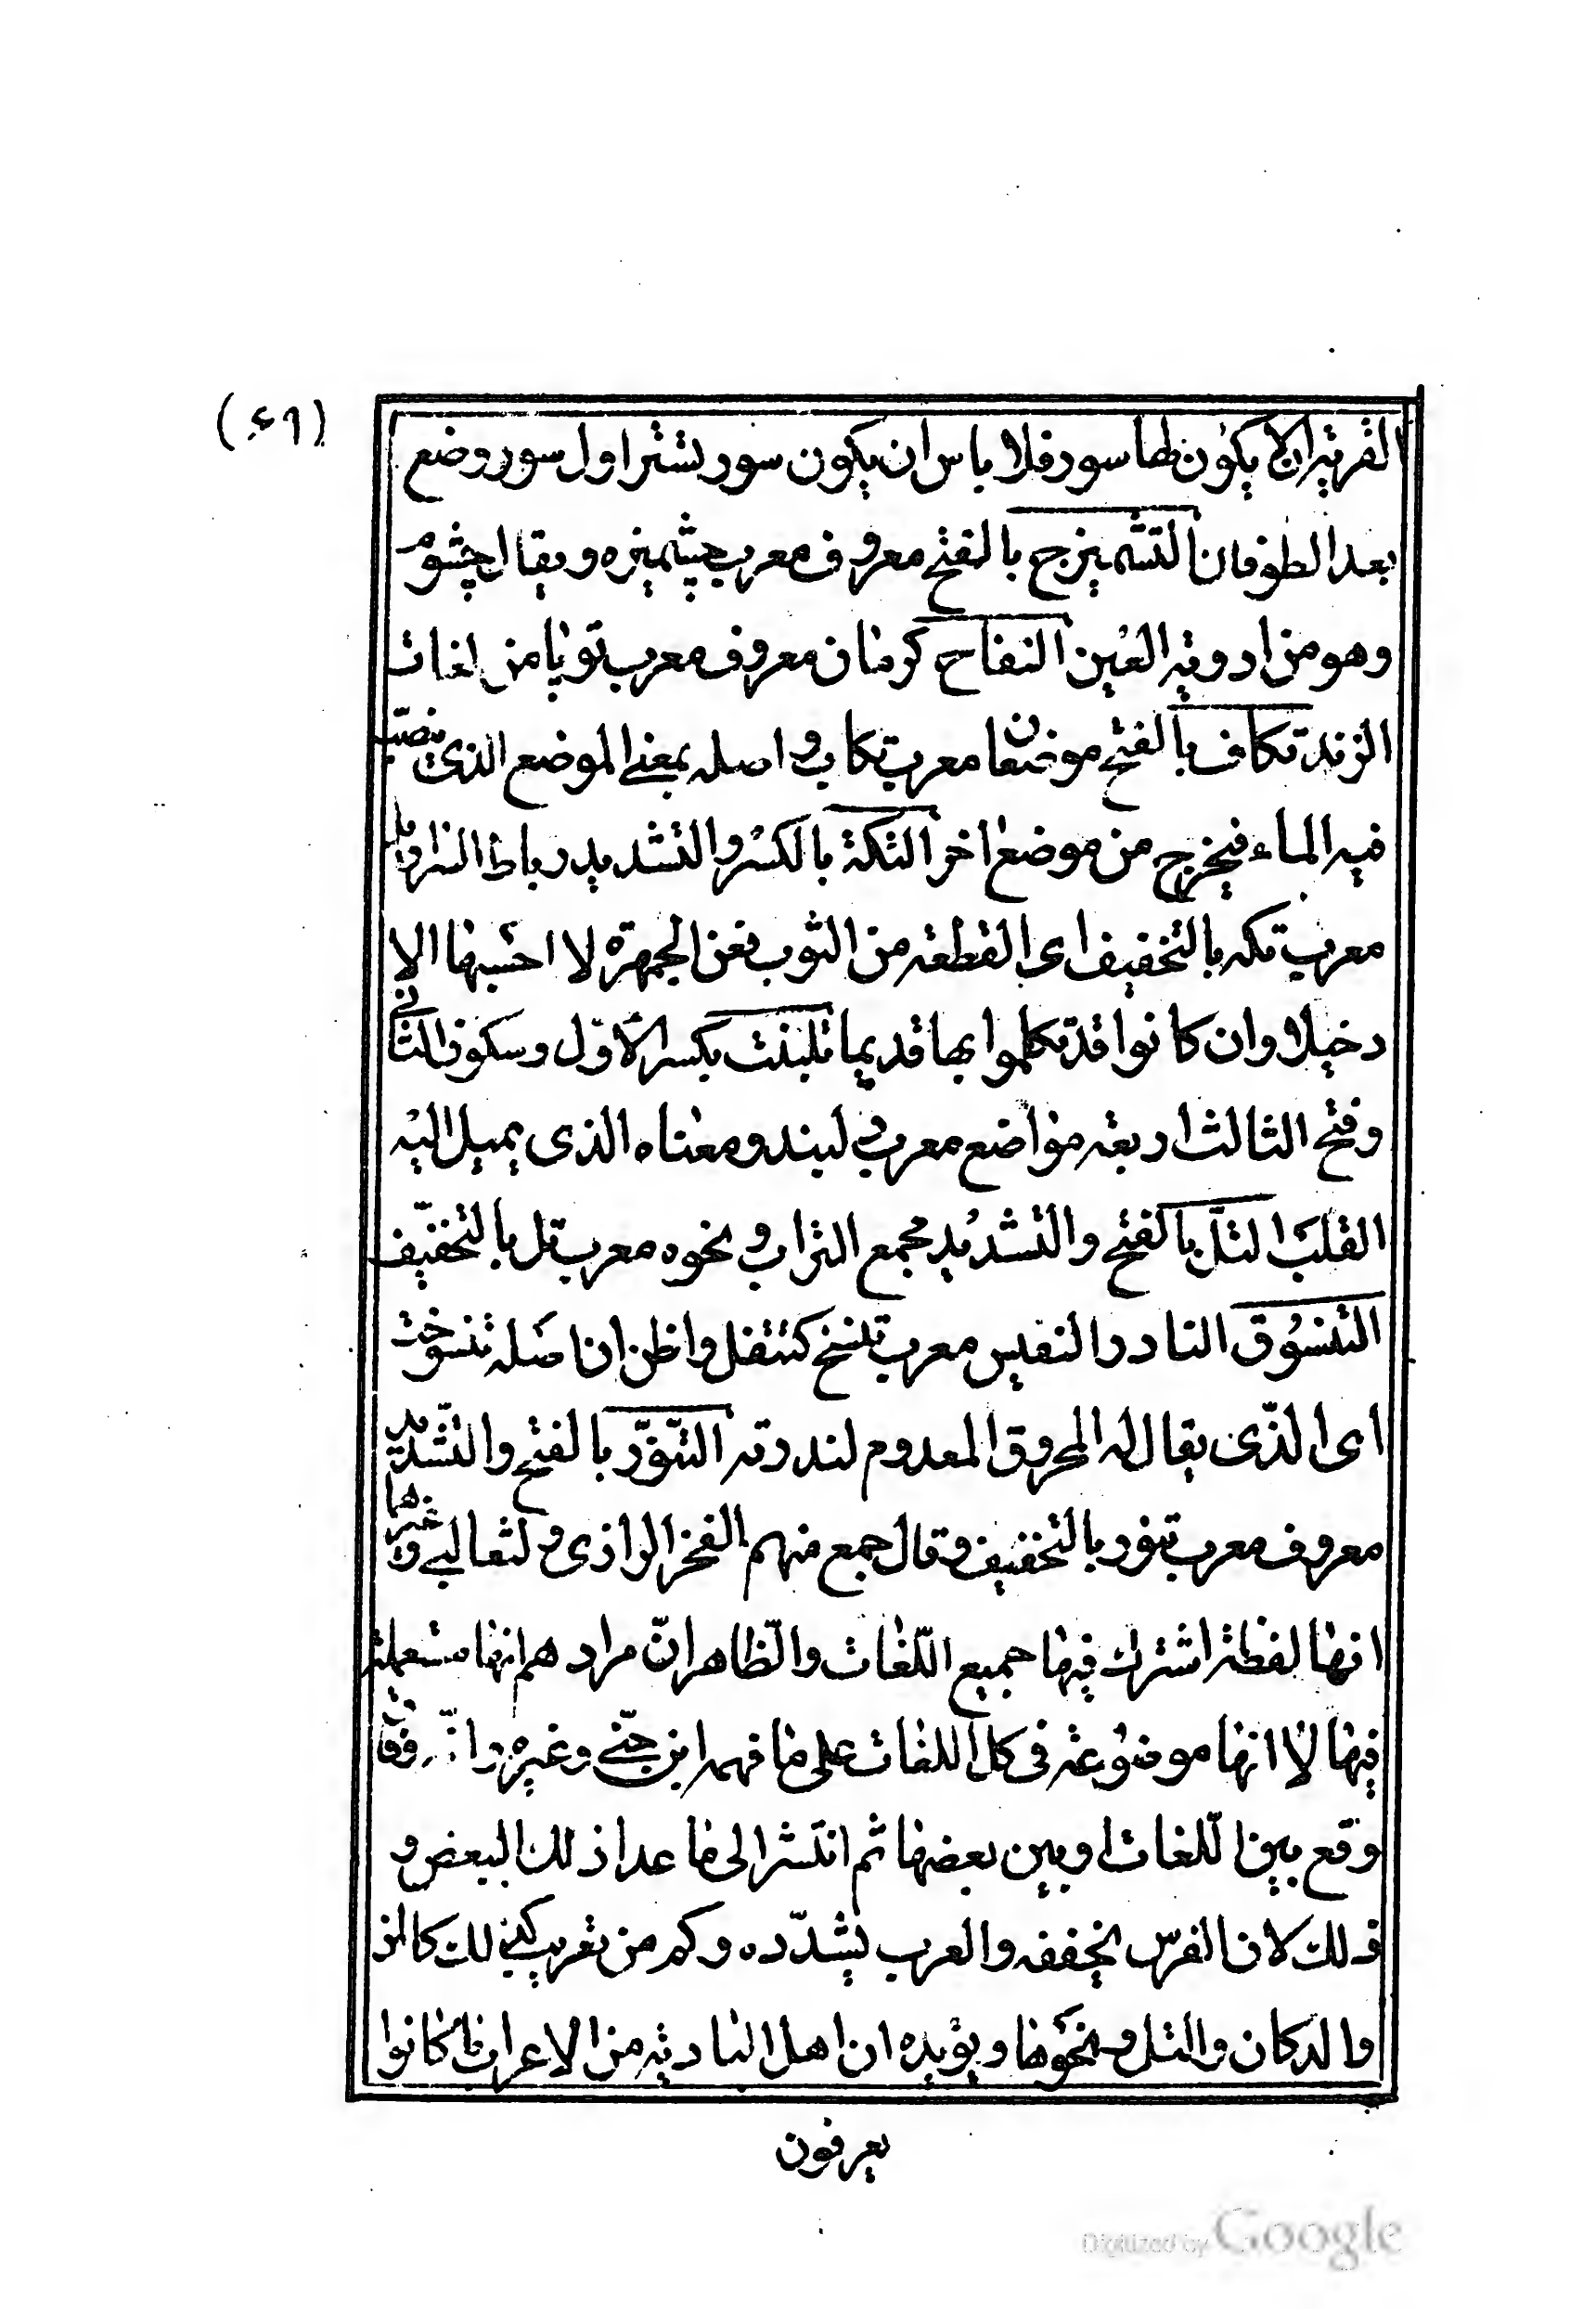 (٤٦)
القرية ان لا يكون لها سور فلا باس ان يكون سور تشتر اول سور وضع
بعد الطوفان التشميزج بالفتح معروف معرب چشميزه ويقال چشوم
وهو من ادوية العين التفاح كرمان معروف معرب توپا من لغات
الزند تكاف بالفتح موضعان معرب تكاب واصله بمعنى الموضع الذى ينصب
فيه الماء فيخرج من موضع اخر التكة بالكسر والتشديد رباط السراويل
معرب تكه بالتخفيف اى القطعة من الثوب فعن الجمهرة لا احسبها الا
دخيلا وان كانوا قد تكلموا بها قديما تلبنت بكسر الاوّل وسكون الثانى
وفتح الثالث اربعة مواضع معرب دلبند ومعناه الذى يميل اليه
القلب التلّ بالفتح والتشديد مجمع التراب ونحوه معرب تل بالتخفيف
التنسوق النادر النفيس معرب تنسخ كتنفل واظن ان اصله تنسوخت
اى الذّى يقال له المحروق المعدوم لندرته التنّور بالفتح والتشديد
معروف معرب تنور بالتخفيف وقال جمع منهم الفخر الرازى والثعالبى وغيرهما
انها لفظة اشترك فيها جميع اللّغات والظاهر انّ مراد هم انها مستعملة
فيها لا انها موضوعة فى كل اللغات على ما فهمه ابن جنّى وغيره وانّه وفاق
وقع بين اللّغات او بين بعضها ثم انتشر الى ما عدا ذلك البعض و
ذلك لان الفرس يخففه والعرب يشدّده وكم من تعريب كذلك كالزر
والدكان والتل ونحوها ويؤيده ان اهل البادية من الاعراب ما كانوا
يعرفون
Digitized by Google